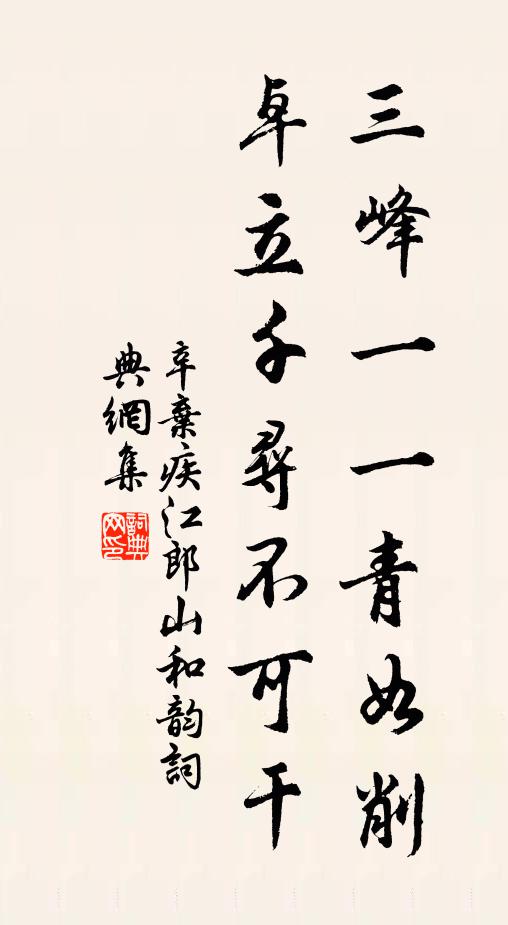 三峰一一青如削
卓立千尋不可干
辛棄疾江郎山和韵詞
典網集
詞典
网印